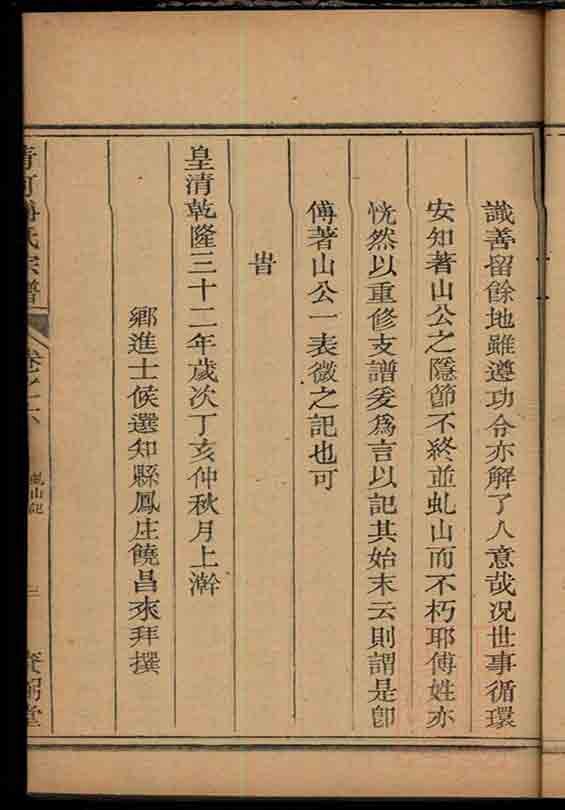 識善留餘地雖遵功令亦解了人意哉况世事循環
安知著山公之隱節不終並虬山而不朽耶傅姓亦
恍然以重修支譜爰為言以記其始末云則謂是卽
傅著山公一表微之記也可
旹
皇清乾隆三十二年歲次丁亥仲秋月上澣
鄉進士候選知縣鳳庄饒昌來拜撰
清河傅氏宗譜
卷之六
虬山記
三